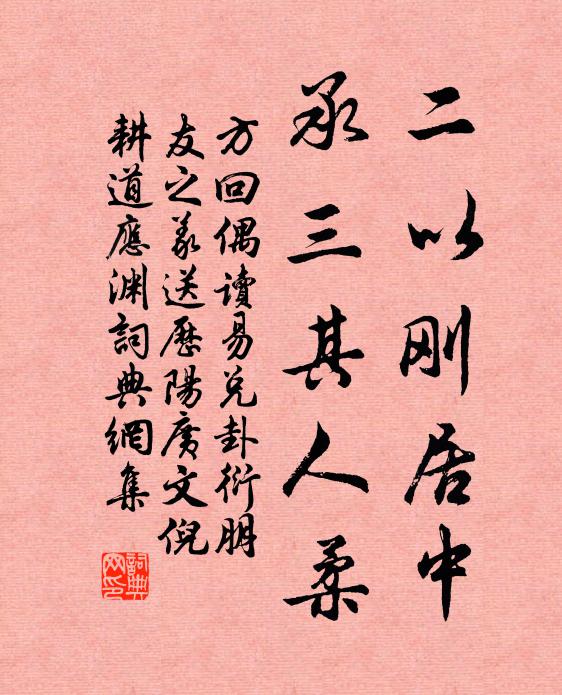 二以刚居中
承三其人柔
方回偶讀易兑卦衍朋
友之义送歷陽廣文倪
耕道應渊詞典網集
詞典
网印